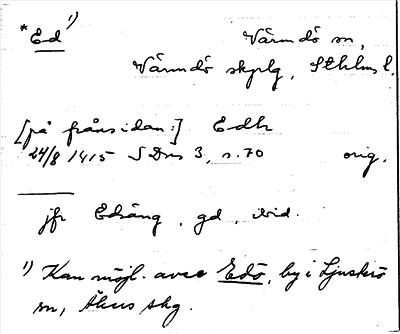 *Ed¹⁾ Värmdö sn,
Värmdö skplg, Sthlms l.
[på frånsidan:] Edh
24/8 1415 SDns 3, s. 70 orig.
jfr Edsäng, gd, ibid.
¹⁾ Kan möjl. avse Edö, by i Ljusterö
sn, Åkers skg.